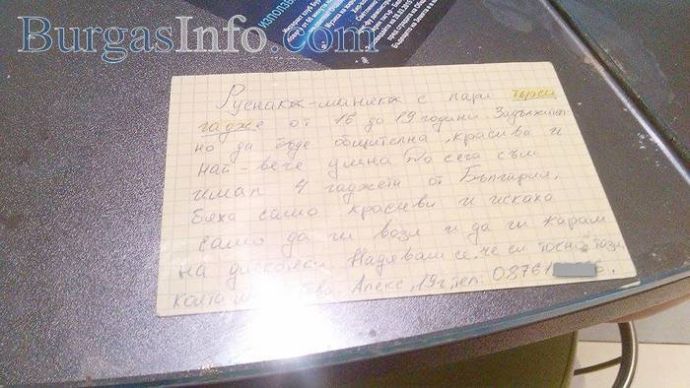 BurgasInfo.com
Руснакът-милиък с пари търси
гадже от 16 до 19 години. Задължител
но да бъде общителна, красива и
най-вече умна. До сега съм
имал 4 гаджета от България,
бяха само красиви и искаха
само да ги возя и да ги карам
на дискотеки. Надявам се, че си точно тази,
която Алекс, 19 г, тел. 08761